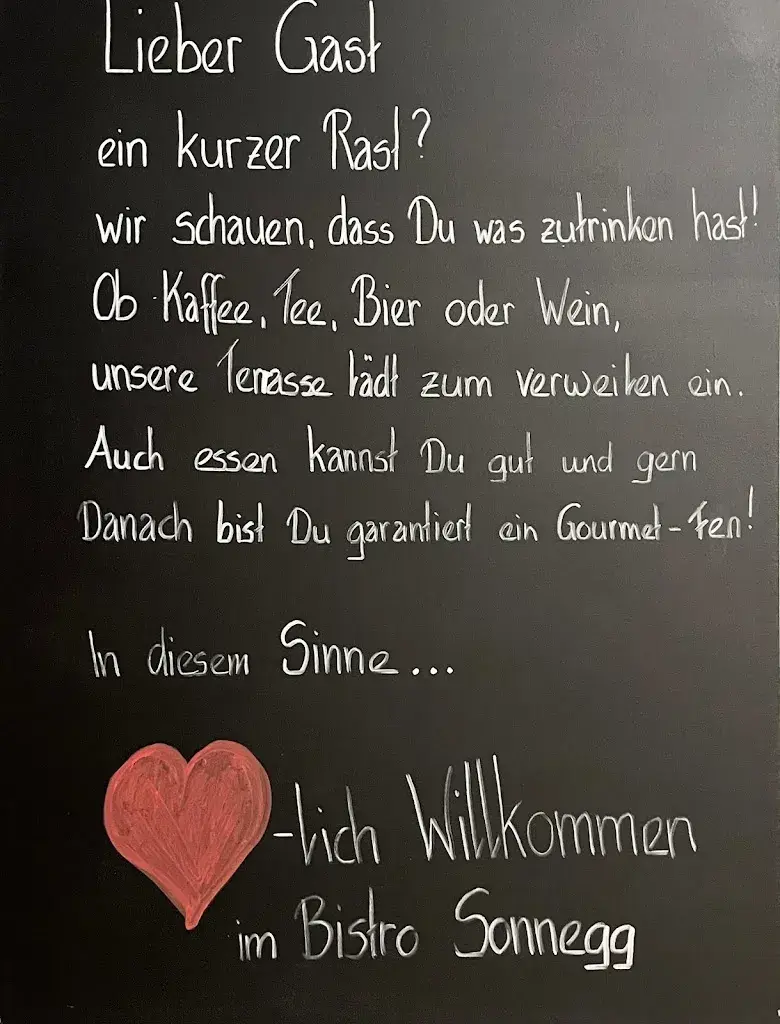 Lieber Gast
ein kurzer Rast?
wir schauen, dass Du was zutrinken hast!
Ob Kaffee, Tee, Bier oder Wein,
unsere Terrasse lädt zum verweilen ein.
Auch essen kannst Du gut und gern
Danach bist Du garantiert ein Gourmet-Fen!
In diesem Sinne...
-lich Willkommen
im Bistro Sonnegg